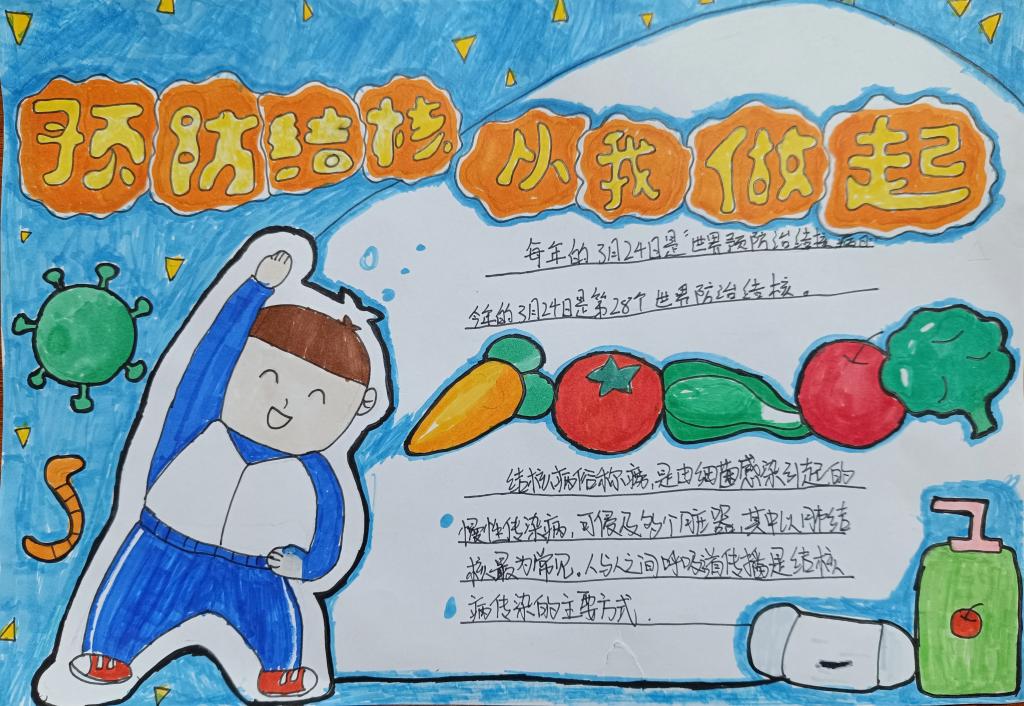 预防结核 从我做起
每年的3月24日是“世界预防治结核病日
今年的3月24日是第28个世界防治结核。
结核病俗称痨,是由细菌感染引起的
慢性传染病,可侵及多个脏器,其中以肺结
核最为常见,人与人之间呼吸道传播是结核
病传染的主要方式.